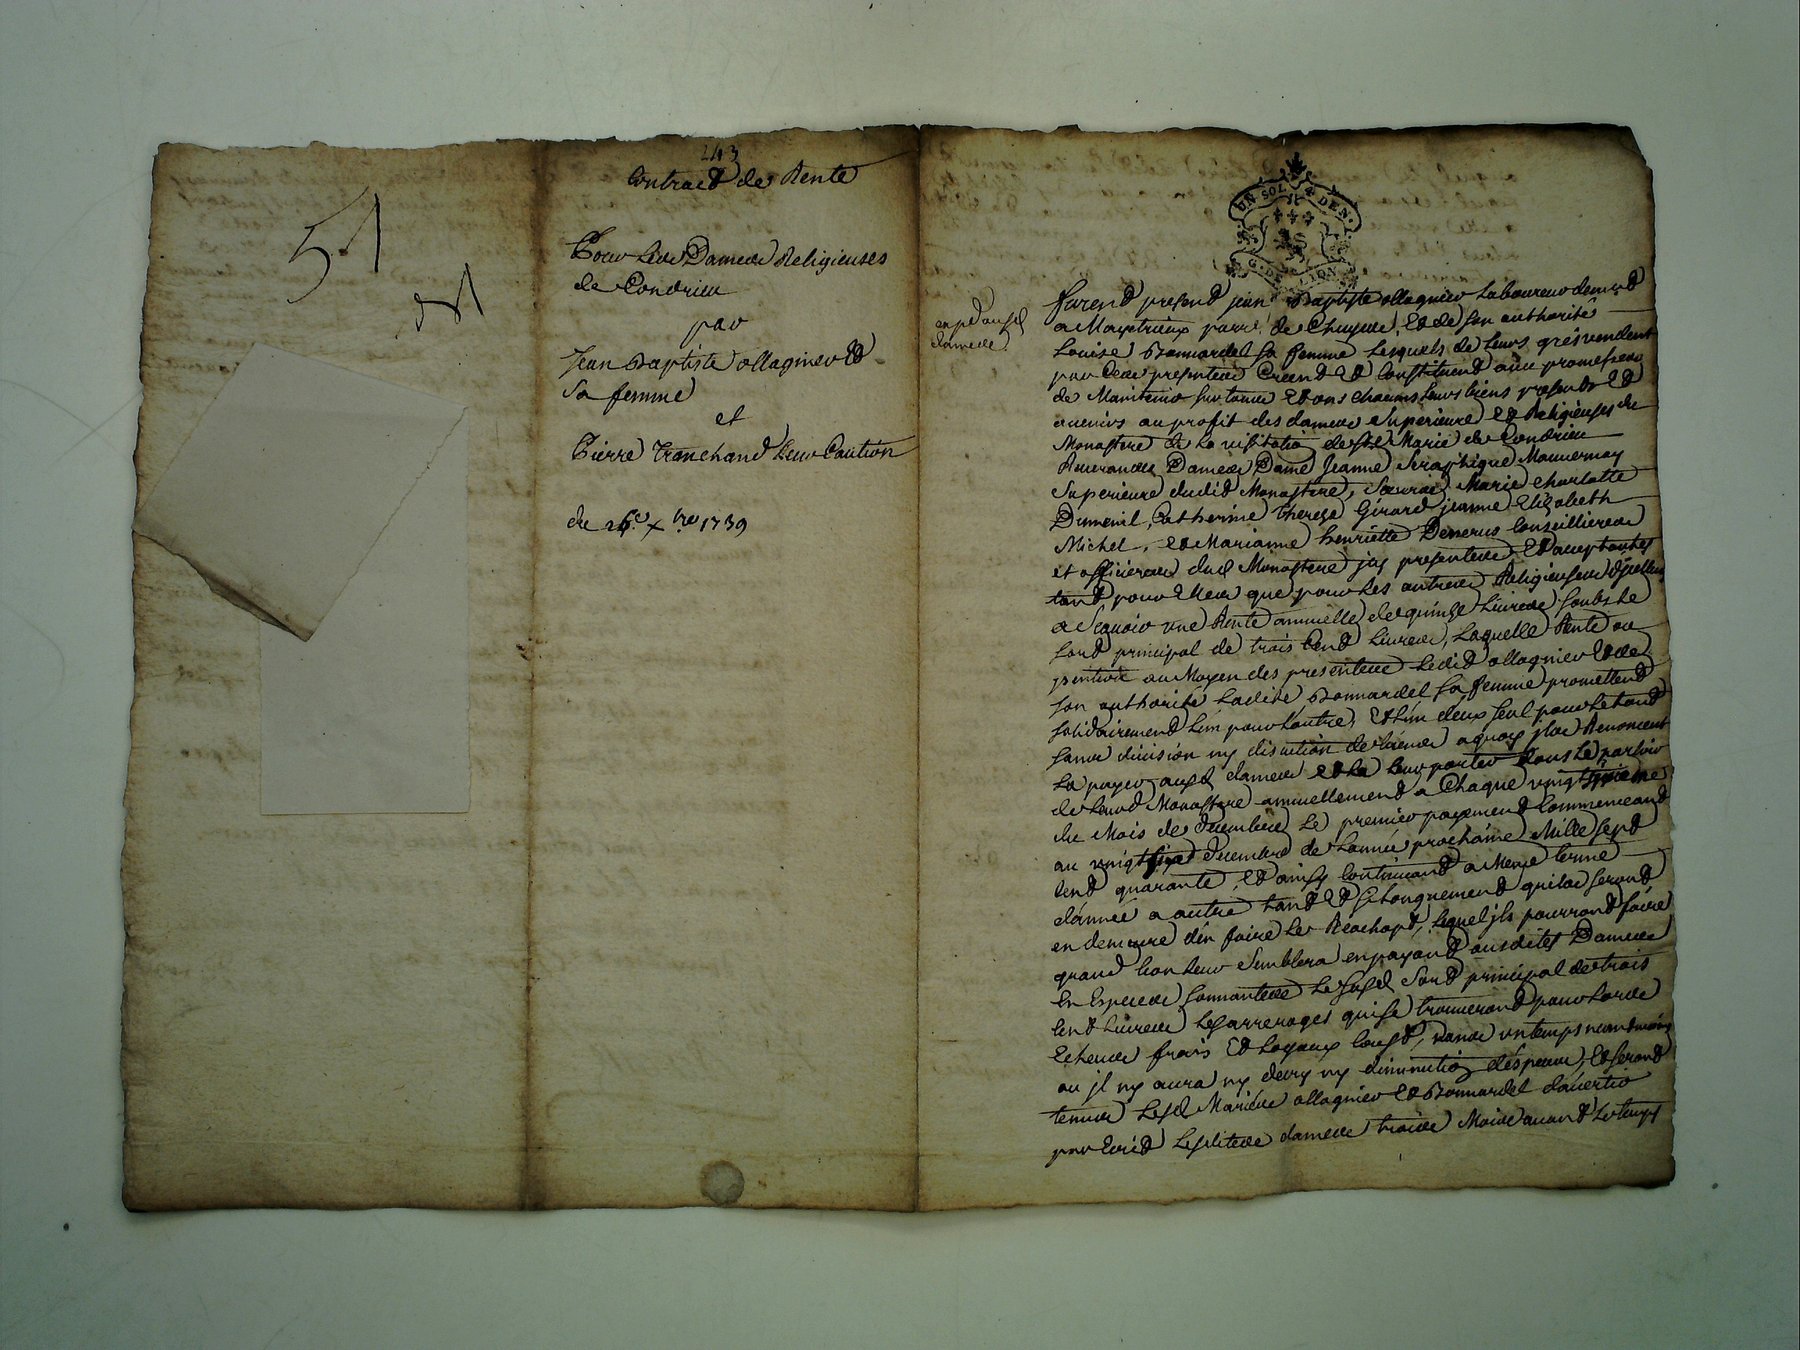 51
243
Contract de Rente
Pour Les Dames Religieuses
de Condrieu
par
Jean Baptiste ollagnier et
Sa femme
et
Pierre Tranchand Leur Caution
du 26e xbre 1739
UN SOL 4 DEN.
G. DE LION
exp.d ausd
dames
furent present jean Baptiste ollagnier Laboureur demt
a parr. de Chuyer, Et de son authorité
Louise Bonnardel sa femme Lesquels de Leurs grés vendent
par Ces presentes Creent Et Constituent avec promesse
de Maintenir sur tous Et uns chacuns Leurs biens presents Et
avenirs au profit des dames Superieure Et Religieuses du
Monastere de La visitation de Ste Marie de Condrieu
Reverandes Dames Dame Jeanne Seraphique
Superieure dudit Monastere, Soeurs Marie Charlotte
Dumenil, Catherine Therese Girard jeanne Elizabeth
Michel, et Marianne henriette Conseillieres
et officieres dud Monastere jcy presentes Et acceptantes
tant pour Elles que pour Les autres Religieuses
a Sçauoir une Rente annuelle de quinze Livres, soubs Le
sort principal de trois Cent Livres, Laquelle Rente ou
pention au Moyen des presentes Ledit ollagnier Et de
son authorité Ladite Bonnardel sa femme promettent
solidairement L'un pour L'autre, Et L'un deux seul pour Le tout
sans division ny discution de biens a quoy jls Renoncent
La payer ausd dames et La Leur porter dans Le parloir
de Leurd Monastere annuellement a Chaque vingt sixieme
du Mois de decembre Le premier payement Commenceant
au vingt six decembre de L'année prochaine Mille sept
Cent quarante, Et ainsy Continuant a Meme terme
d'année a autre tant Et si Longuement quils seront
en demeure d'en faire Le Reachapt, Lequel jls pourront faire
quand bon Leur Semblera en payant ausdites Dames
En Especes sonnantes Le susd Sort principal de trois
Cent Livres Les arrerages qui se trouveront pour Lors
Echeus frais Et Loyaux Coust, dans un temps neantmoins
ou jl ny aura ny decry ny diminution d'especes, Et seront
tenus Lesd Mariés ollagnier Et Bonnardel d'avertir
par Ecrit Lesdites dames trois Mois avant Le temps